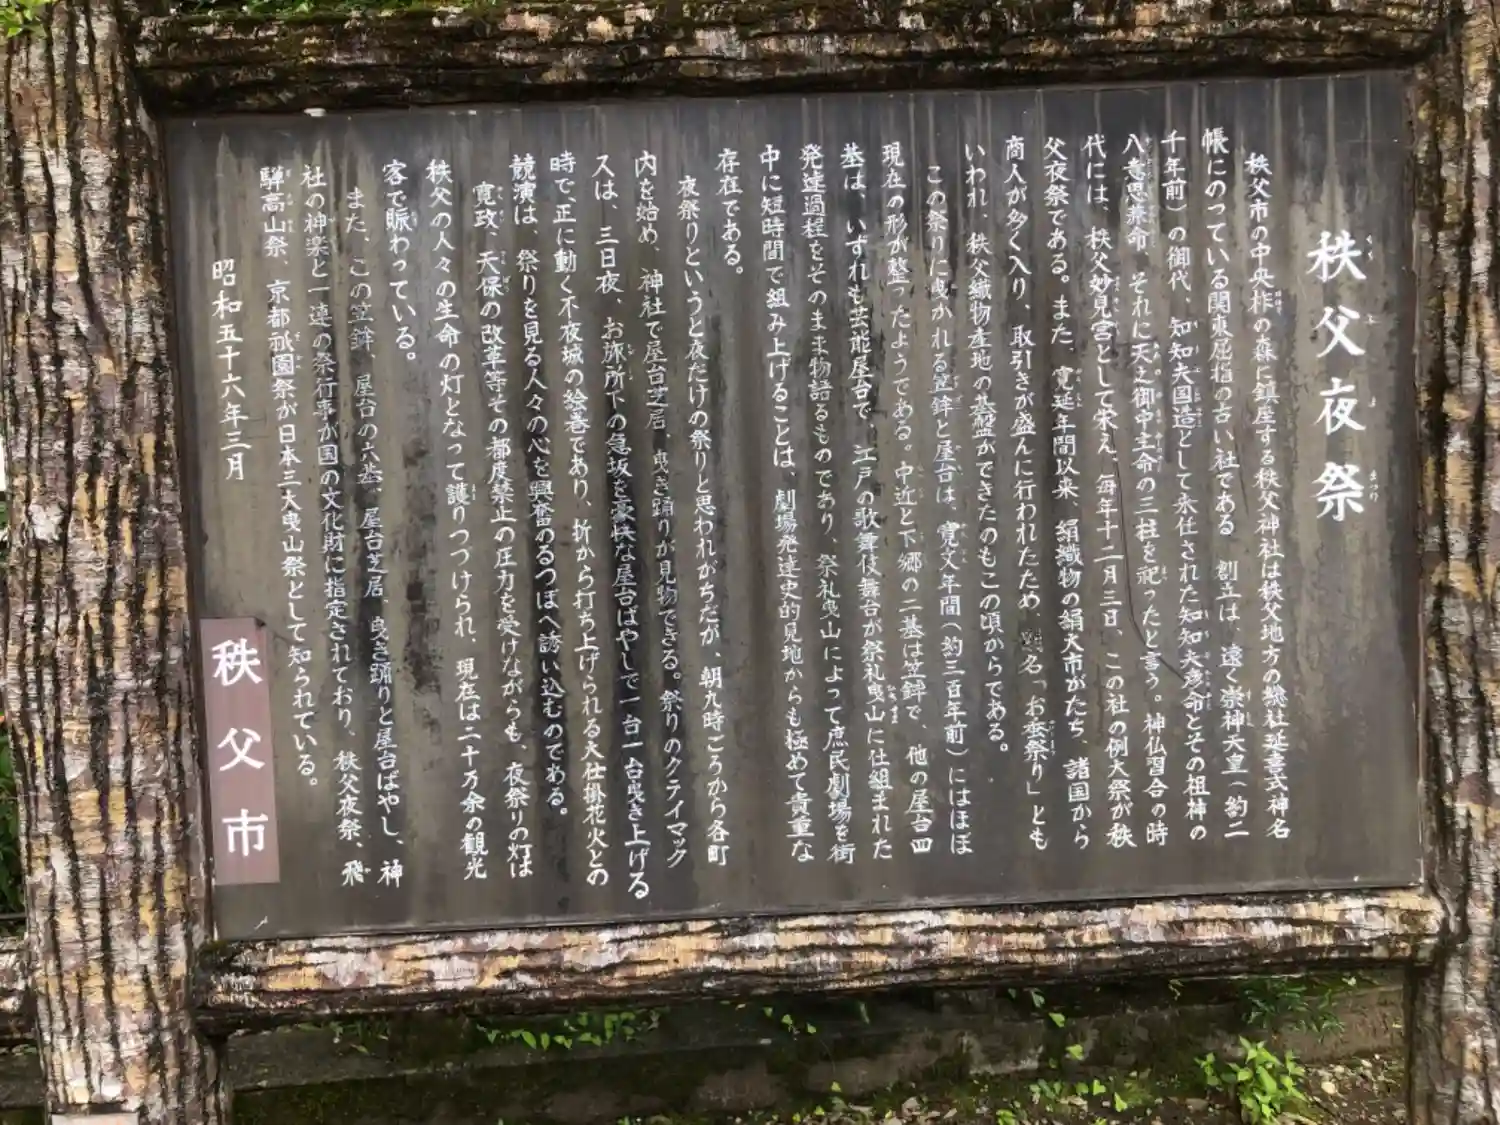 秩父夜祭
秩父市の中央柞の森に鎮座する秩父神社は秩父地方の総社延喜式神名
帳にのっている関東屈指の古い社である 創立は、遠く崇神天皇(約二
千年前)の御代、知知夫国造として永任された知知夫彦命とその祖神の
八意思兼命、それに天之御中主命の三柱を祀ったと言う。神仏習合の時
代には、秩父妙見宮として栄え、毎年十二月三日、この社の例大祭が秩
父夜祭である。また、寛延年間以来、絹織物の絹大市がたち、諸国から
商人が多く入り、取引きが盛んに行われたため、別名「お蚕祭り」とも
いわれ、秩父織物産地の基盤ができたのもこの頃からである。
この祭りに曳かれる笠鉾と屋台は、寛文年間(約三百年前)にはほぼ
現在の形が整ったようである。中近と下郷の二基は笠鉾で、他の屋台四
基は、いずれも芸能屋台で、江戸の歌舞伎舞台が祭礼曳山に仕組まれた
発達過程をそのまま物語るものであり、祭礼曳山によって庶民劇場を街
中に短時間で組み上げることは、劇場発達史的見地からも極めて貴重な
存在である。
夜祭りというと夜だけの祭りと思われがちだが、朝九時ごろから各町
内を始め、神社で屋台芝居、曳き踊りが見物できる。祭りのクライマック
スは、三日夜、お旅所下の急坂を豪快な屋台ばやしで一台一台曳き上げる
時で、正に動く不夜城の絵巻であり、折から打ち上げられる大仕掛花火との
競演は、祭りを見る人々の心を興奮のるつぼへ誘い込むのである。
寛政、天保の改革等その都度禁止の圧力を受けながらも、夜祭りの灯は
秩父の人々の生命の灯となって護りつづけられ、現在は二十万余の観光
客で賑わっている。
また、この笠鉾、屋台の六基、屋台芝居、曳き踊りと屋台ばやし、神
社の神楽と一連の祭行事が国の文化財に指定されており、秩父夜祭、飛
騨高山祭、京都祇園祭が日本三大曳山祭として知られている。
昭和五十六年三月
秩父市